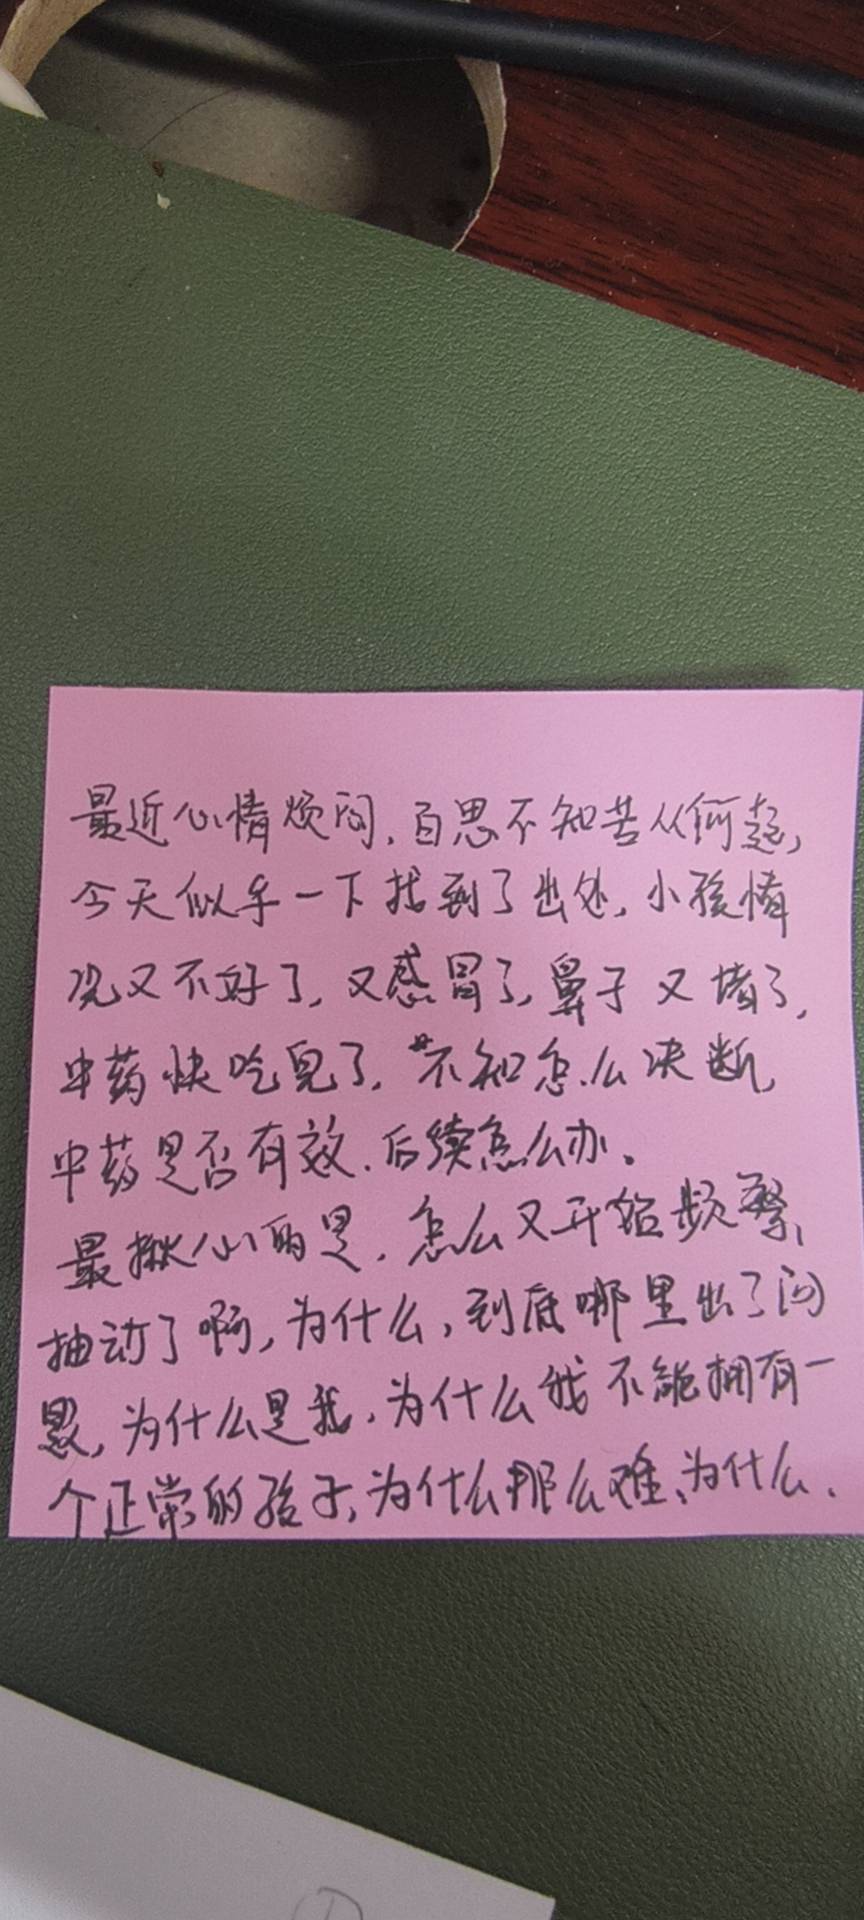 最近心情烦闷，百思不知苦从何起，
今天似乎一下找到了出处，小孩情
况又不好了，又感冒了，鼻子又堵了，
中药快吃完了，不知怎么决断，
中药是否有效，后续怎么办。
最揪心的是，怎么又开始频繁
抽动了啊，为什么，到底哪里出了问
题，为什么是我，为什么我不能拥有一
个正常的孩子，为什么那么难，为什么，